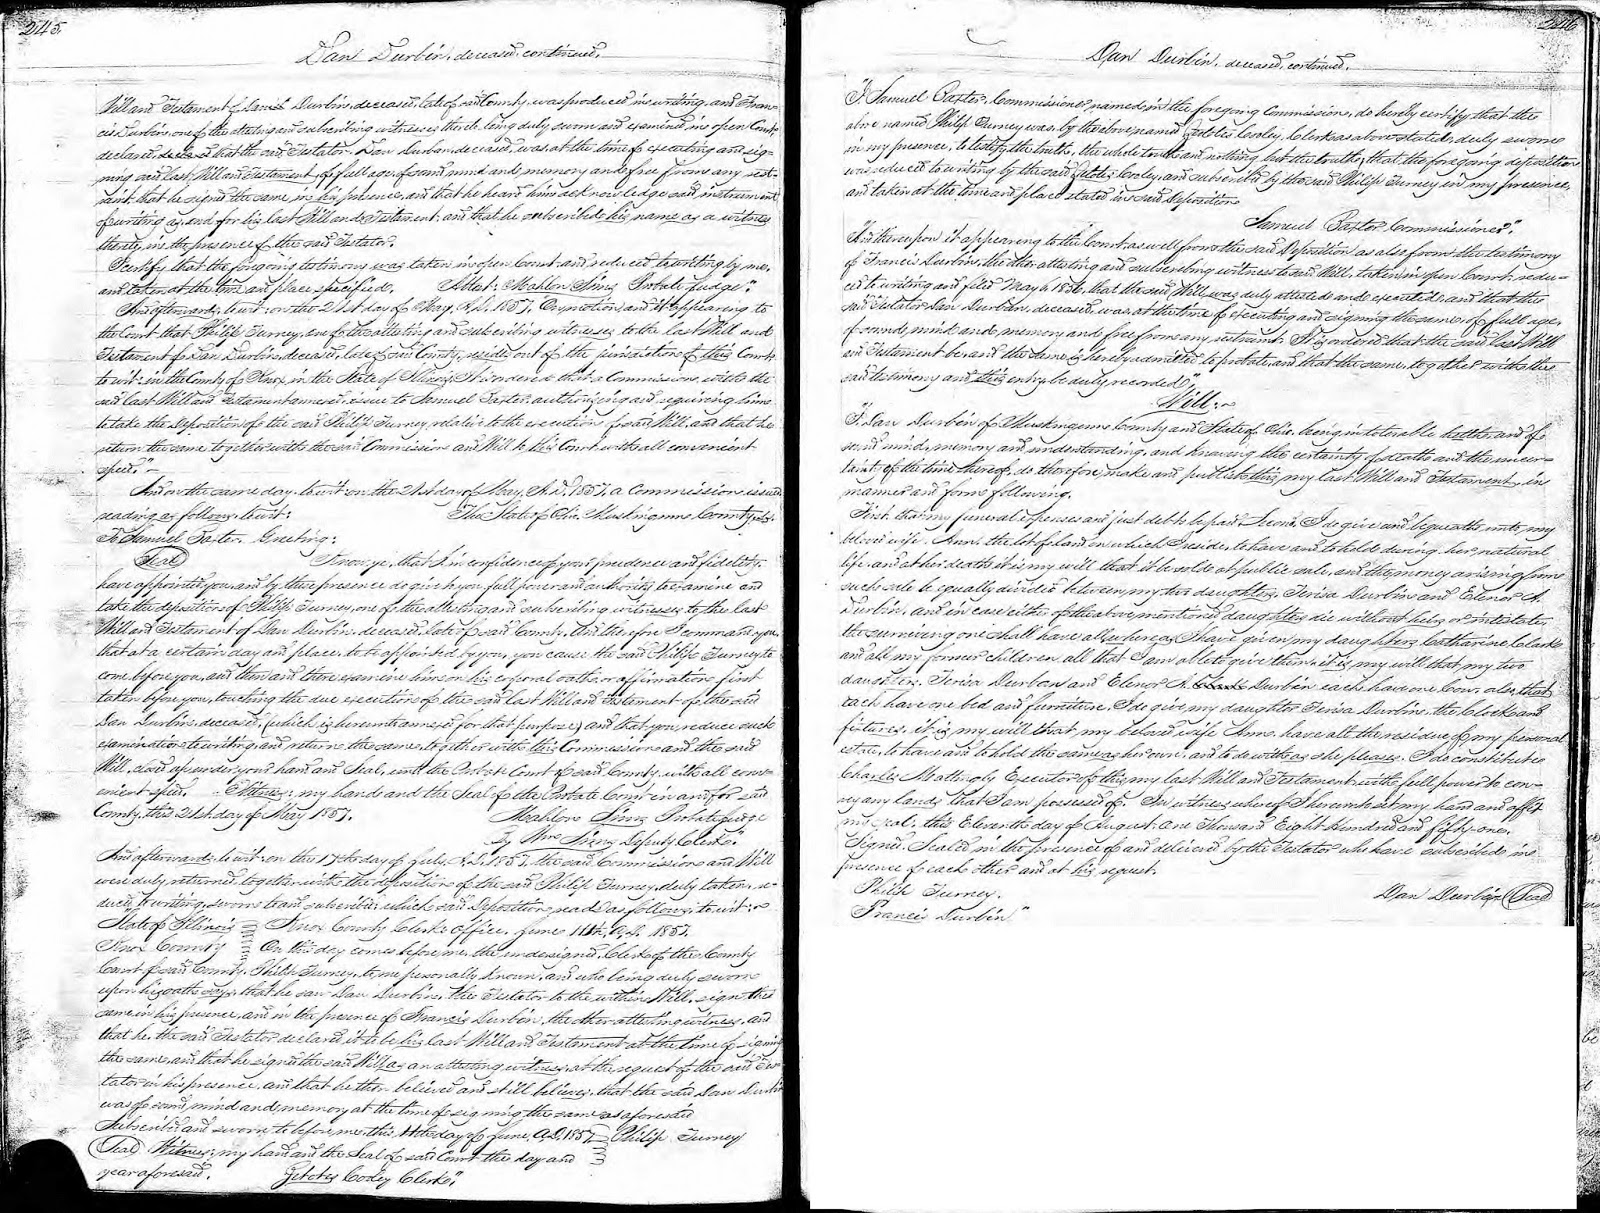 245
Dan Durbin, deceased, continued.
Will and Testament of Durbin, deceased, late of said County, was produced in writing, and Fran-
cis Durbin, one of the attesting and subscribing witnesses thereto being duly sworn and examined in open Court
declared, that the said Testator Dan Durbin, deceased, was, at the time of executing and sig-
ning said last Will and Testament, of full age, of sound mind and memory and free from any rest-
raint that he signed the same in his presence, and that he heard him acknowledge said instrument
of writing as, and for his last Will and Testament, and that he subscribed his name as a witness
thereto, in the presence of the said Testator.
I certify that the foregoing testimony was taken in open Court and reduced to writing by me,
and taken at the time and place specified. Attest: Mahlon Sims Probate Judge".
And afterwards, to wit: on the 21st day of May, A.D. 1857, On motion and it appearing to
the Court that Philip Turney, one of the attesting and subscribing witnesses to the last Will and
Testament of Dan Durbin, deceased, late of said County, resides out of the jurisdiction of this Court
to wit: in the County of Knox, in the State of Illinois, It is ordered that a Commission, with the
said last Will and Testament annexed, issue to Samuel Paxter, authorizing and requiring him
to take the deposition of the said Philip Turney, relative to the execution of said Will, and that he
return the same together with the said Commission and Will to this Court with all convenient
speed."
And on the same day, to wit: on the 21st day of May, A.D. 1857, a Commission issued
reading as follows, to wit: The State of Ohio, Muskingum County, ss.
To Samuel Paxter, Greeting:
Seal Know ye, that I, in confidence of your prudence and fidelity,
have appointed you, and by these presence do give you full power and authority to examine and
take the deposition of Philip Turney, one of the attesting and subscribing witnesses to the last
Will and Testament of Dan Durbin, deceased, late of said County. And therefore I command you,
that at a certain day and place, to be appointed by you, you cause the said Philip Turney to
come before you, and then and there examine him on his corporal oath, or affirmation first
taken before you, touching the due execution of the said last Will and Testament of the said
Dan Durbin, deceased, (which is hereunto annexed for that purpose) and that you reduce such
examination to writing, and return the same, together with this Commission and the said
Will, closed up under your hand and Seal, unto the Probate Court of said County, with all conv-
enient speed. Witness, my hand and the Seal of the Probate Court in and for said
County, this 21st day of May 1857. Mahlon Sims Probate Judge
By Wm Sims Deputy Clerk".
And afterwards, to wit: on the 17th day of July, A.D. 1857, the said Commission and Will
were duly returned, together with the deposition of the said Philip Turney, duly taken, re-
duced to writing, sworn to and subscribed; which said Deposition reads as follows, to wit:
State of Illinois Knox County Clerk's office, June 11th, A.D. 1857.
Knox County On this day comes before me, the undersigned, Clerk of the County
Court of said County, Philip Turney, to me personally known, and who being duly sworn
upon his oath says, that he saw Dan Durbin, the Testator to the within Will, sign the
same in his presence, and in the presence of Francis Durbin, the other attesting witness, and
that he, the said Testator declared it to be his last Will and Testament at the time of signing
the same, and that he signed the said Will as an attesting witness at the request of the said Tes-
tator in his presence, and that he then believed and still believes, that the said Dan Durbin
was of sound mind and memory at the time of signing the same as aforesaid
Subscribed and sworn to before me, this 11th day of June, A.D. 1857. Philip Turney
Seal Witness; my hand and the Seal of said Court the day and
year aforesaid. Cooley Clerk".
246
Dan Durbin, deceased, continued.
"I, Samuel Paxter, Commissioner, named in the foregoing Commission, do hereby certify that the
above named Philip Turney was, by the above named Cooley, Clerk as above stated, duly sworn
in my presence, to testify the truth, the whole truth and nothing but the truth; that the foregoing deposition
was reduced to writing by the said Cooley, and subscribed by the said Philip Turney in my presence,
and taken at the time and place stated in said Deposition.
Samuel Paxter Commissioner".
And thereupon it appearing to the Court as well from the said Deposition as also from the testimony
of Francis Durbin, the other attesting and subscribing witness to said Will, taken in open Court, redu-
ced to writing and filed May 6 1856, that the said Will was duly attested and executed, and that the
said Testator Dan Durbin, deceased, was, at the time of executing and signing the same, of full age,
of sound mind and memory and free from any restraint. It is ordered that the said last Will
and Testament be, and the same is hereby admitted to probate, and that the same, together with the
said testimony and this entry be duly recorded."
Will:
"I, Dan Durbin of Muskingum County and State of Ohio, being in tolerable health and of
sound mind, memory and understanding, and knowing the certainty of death and the uncer-
tainty of the time thereof, do therefore, make and publish this, my last Will and Testament, in
manner and form following.
First, that my funeral expenses and just debts be paid. Second, I do give and bequeath unto my
beloved wife, Ann, the lot of land on which I reside, to have and to hold during her natural
life, and at her death it is my will that it be sold at public sale, and the money arising from
such sale be equally divided between my two daughters, Terisa Durbin and Elenor A.
Durbin, and in case either of the above mentioned daughters die without heirs or intestate,
the surviving one shall have all, whereas I have given my daughters Catharine Clark
and all my former children all that I am able to give them, it is my will that my two
daughters, Terisa Durban and Elenor A. Durbin each have one Cow, also, that
each have one bed and furniture, I do give my daughter Terisa Durbin, the Clock and
fixtures. it is my will that my beloved wife Ann, have all the residue of my personal
estate, to have and to hold the same as her own, and to do with as she pleases. I do constitute
Charles Mattingly Executor of this my last Will and Testament, with full power to con-
vey any lands that I am possessed of. In witness whereof I hereunto set my hand and affix
my seal, this Eleventh day of August, One Thousand Eight Hundred and fifty-one.
Signed, Sealed in the presence of and delivered by the Testator who have subscribed in
presence of each other and at his request.
Philip Turney. Dan Durbin Seal
Francis Durbin"